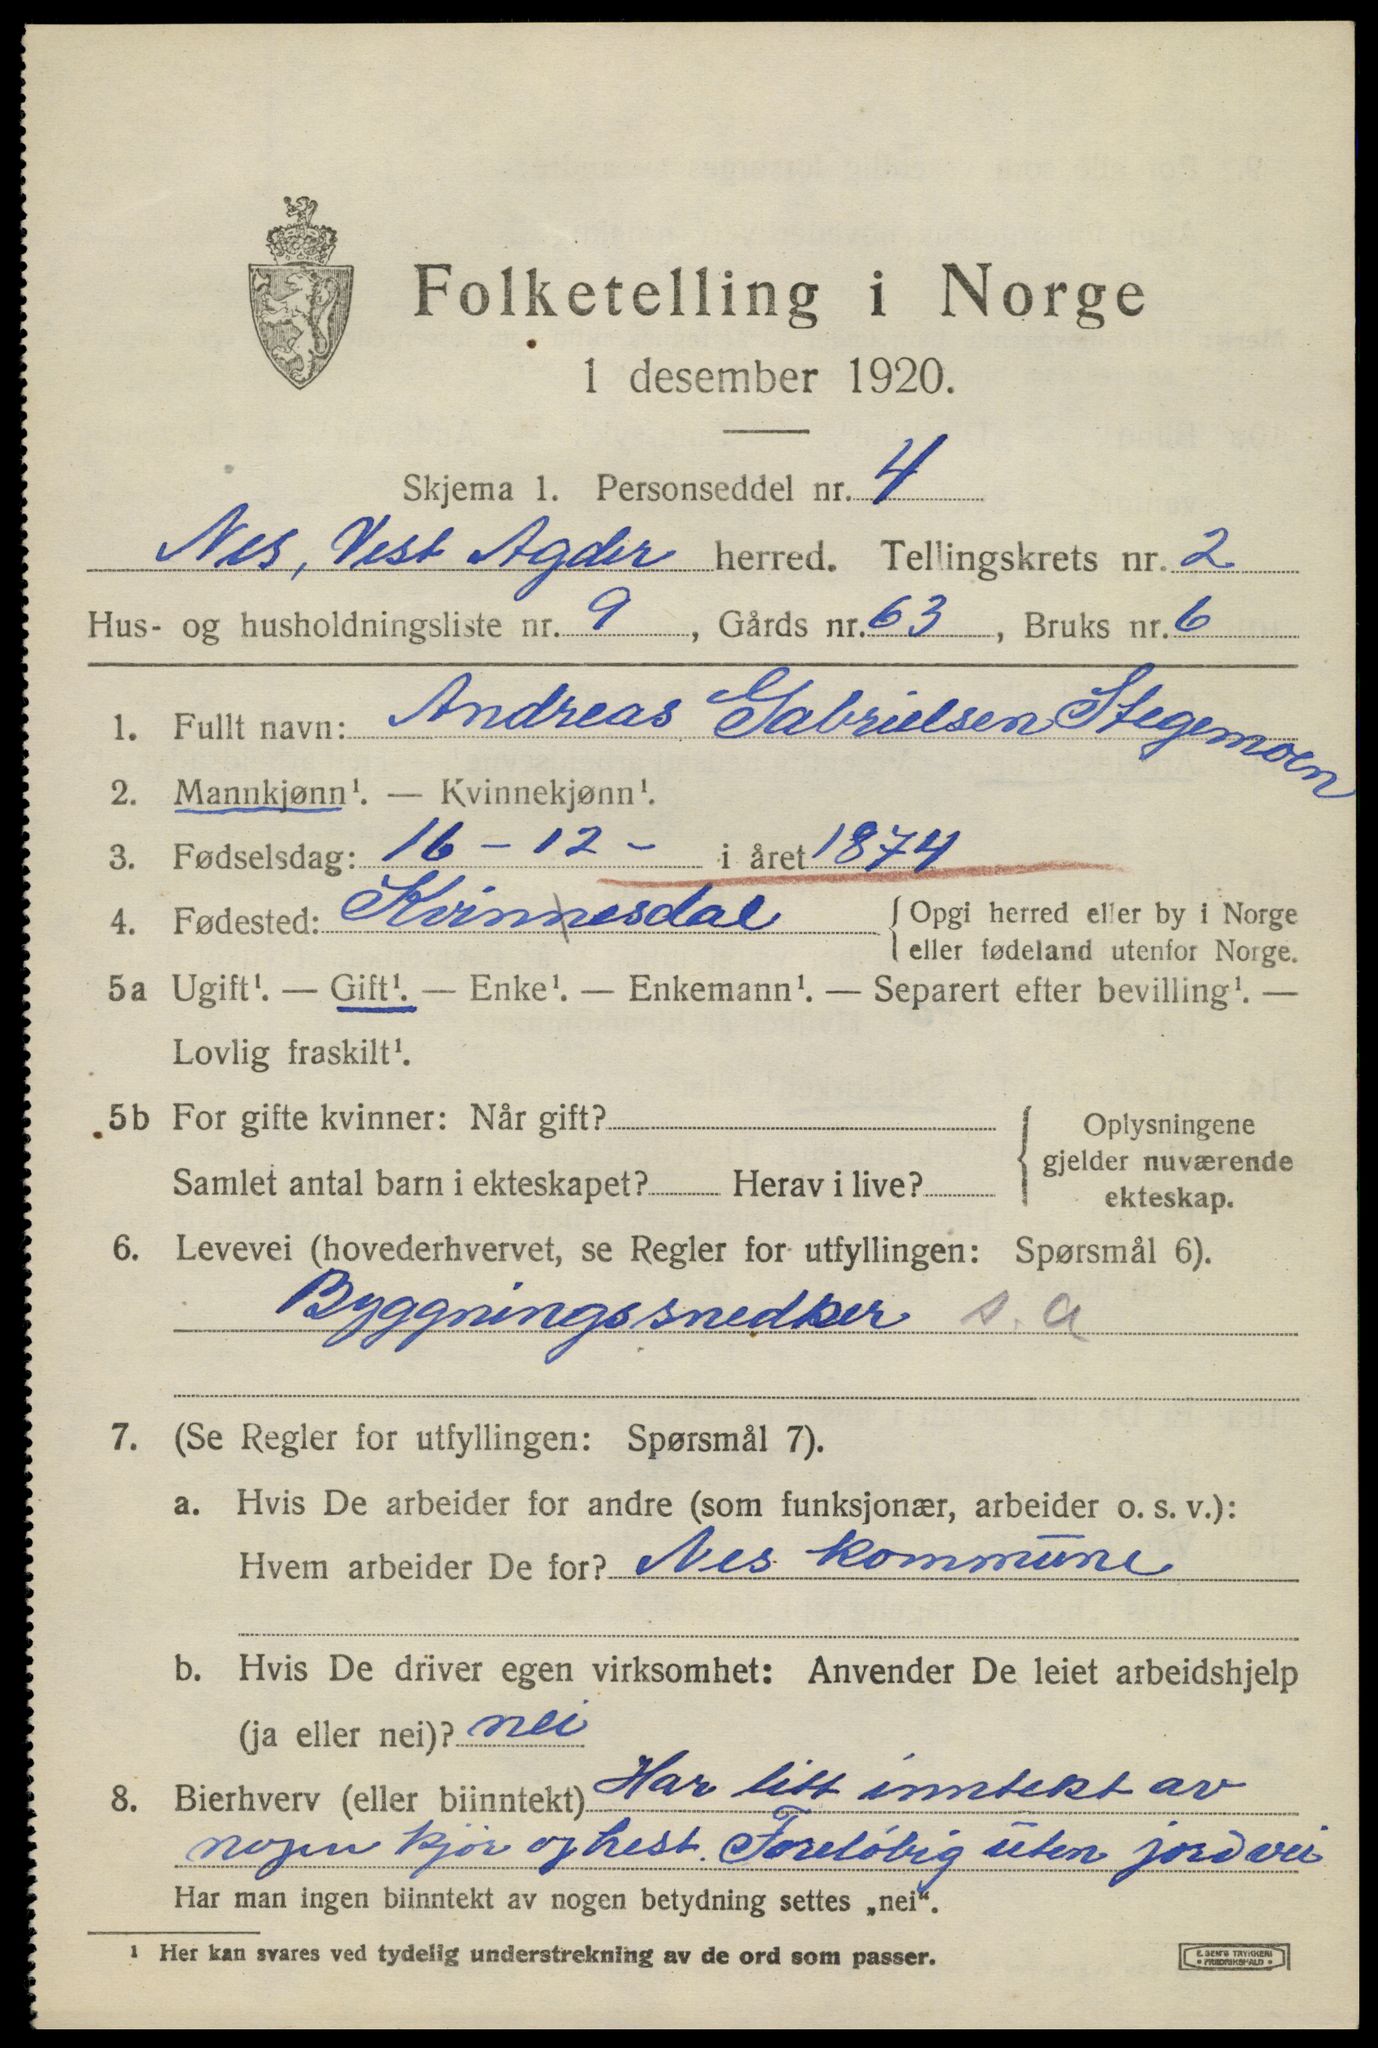 Folketelling i Norge
1 desember 1920.
Skjema 1. Personseddel nr. 4
Nes, Vest Agder herred. Tellingskrets nr. 2
Hus- og husholdningsliste nr. 9, Gårds nr. 63, Bruks nr. 6
1. Fullt navn: Andreas Gabrielsen Stegemoen
2. Mannkjønn¹. — Kvinnekjønn¹.
3. Fødselsdag: 16 - 12 - i året 1874
4. Fødested: Kvinnesdal { Opgi herred eller by i Norge
eller fødeland utenfor Norge.
5a Ugift¹. — Gift¹. — Enke¹. — Enkemann¹. — Separert efter bevilling¹. —
Lovlig fraskilt¹.
5b For gifte kvinner: Når gift?
Samlet antal barn i ekteskapet? Herav i live?
{ Oplysningene
gjelder nuværende
ekteskap.
6. Levevei (hovederhvervet, se Regler for utfyllingen: Spørsmål 6).
Byggningssnedker s. a
7. (Se Regler for utfyllingen: Spørsmål 7).
a. Hvis De arbeider for andre (som funksjonær, arbeider o. s. v.):
Hvem arbeider De for? Nes kommune
b. Hvis De driver egen virksomhet: Anvender De leiet arbeidshjelp
(ja eller nei)? nei
8. Bierhverv (eller biinntekt) Har litt inntekt av
nogen kjør og hest. Foreløbig uten jordvei
Har man ingen biinntekt av nogen betydning settes „nei“.
¹ Her kan svares ved tydelig understrekning av de ord som passer.
E. SEM'S TRYKKERI
• FREDRIKSHALD •